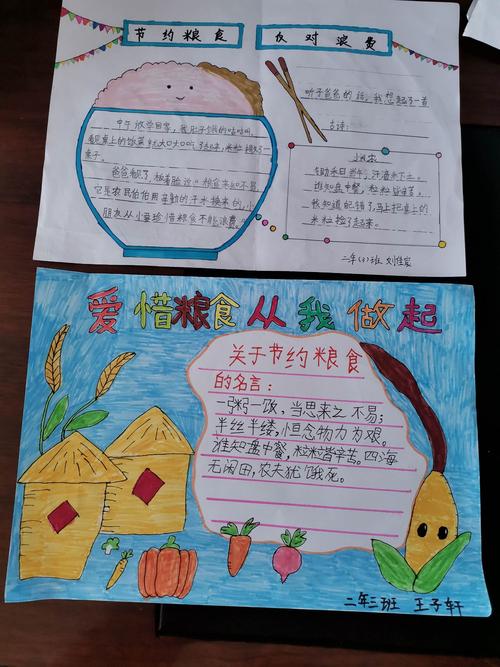 节约粮食 反对浪费
中午放学回家,我肚子饿的咕咕叫,
看见桌上的饭菜就大口大口吃了起来,米粒掉了一
桌子。
爸爸看见了,板着脸说:“粮食来之不易,
它是农民伯伯用辛勤的汗水换来的,小
朋友从小要珍惜粮食不能浪费。”
听了爸爸的话,我想起了一首
古诗:
上《悯农》
锄禾日当午,汗滴禾下土。
谁知盘中餐,粒粒皆辛苦。
我知道错了,马上把桌上的
米粒捡了起来。
二年(3)班 刘佳宸
爱惜粮食从我做起
关于节约粮食
的名言:
一粥一饭,当思来之不易;
半丝半缕,恒念物力为艰。
谁知盘中餐,粒粒皆辛苦。四海
无闲田,农夫犹饿死。
二年三班 王子轩